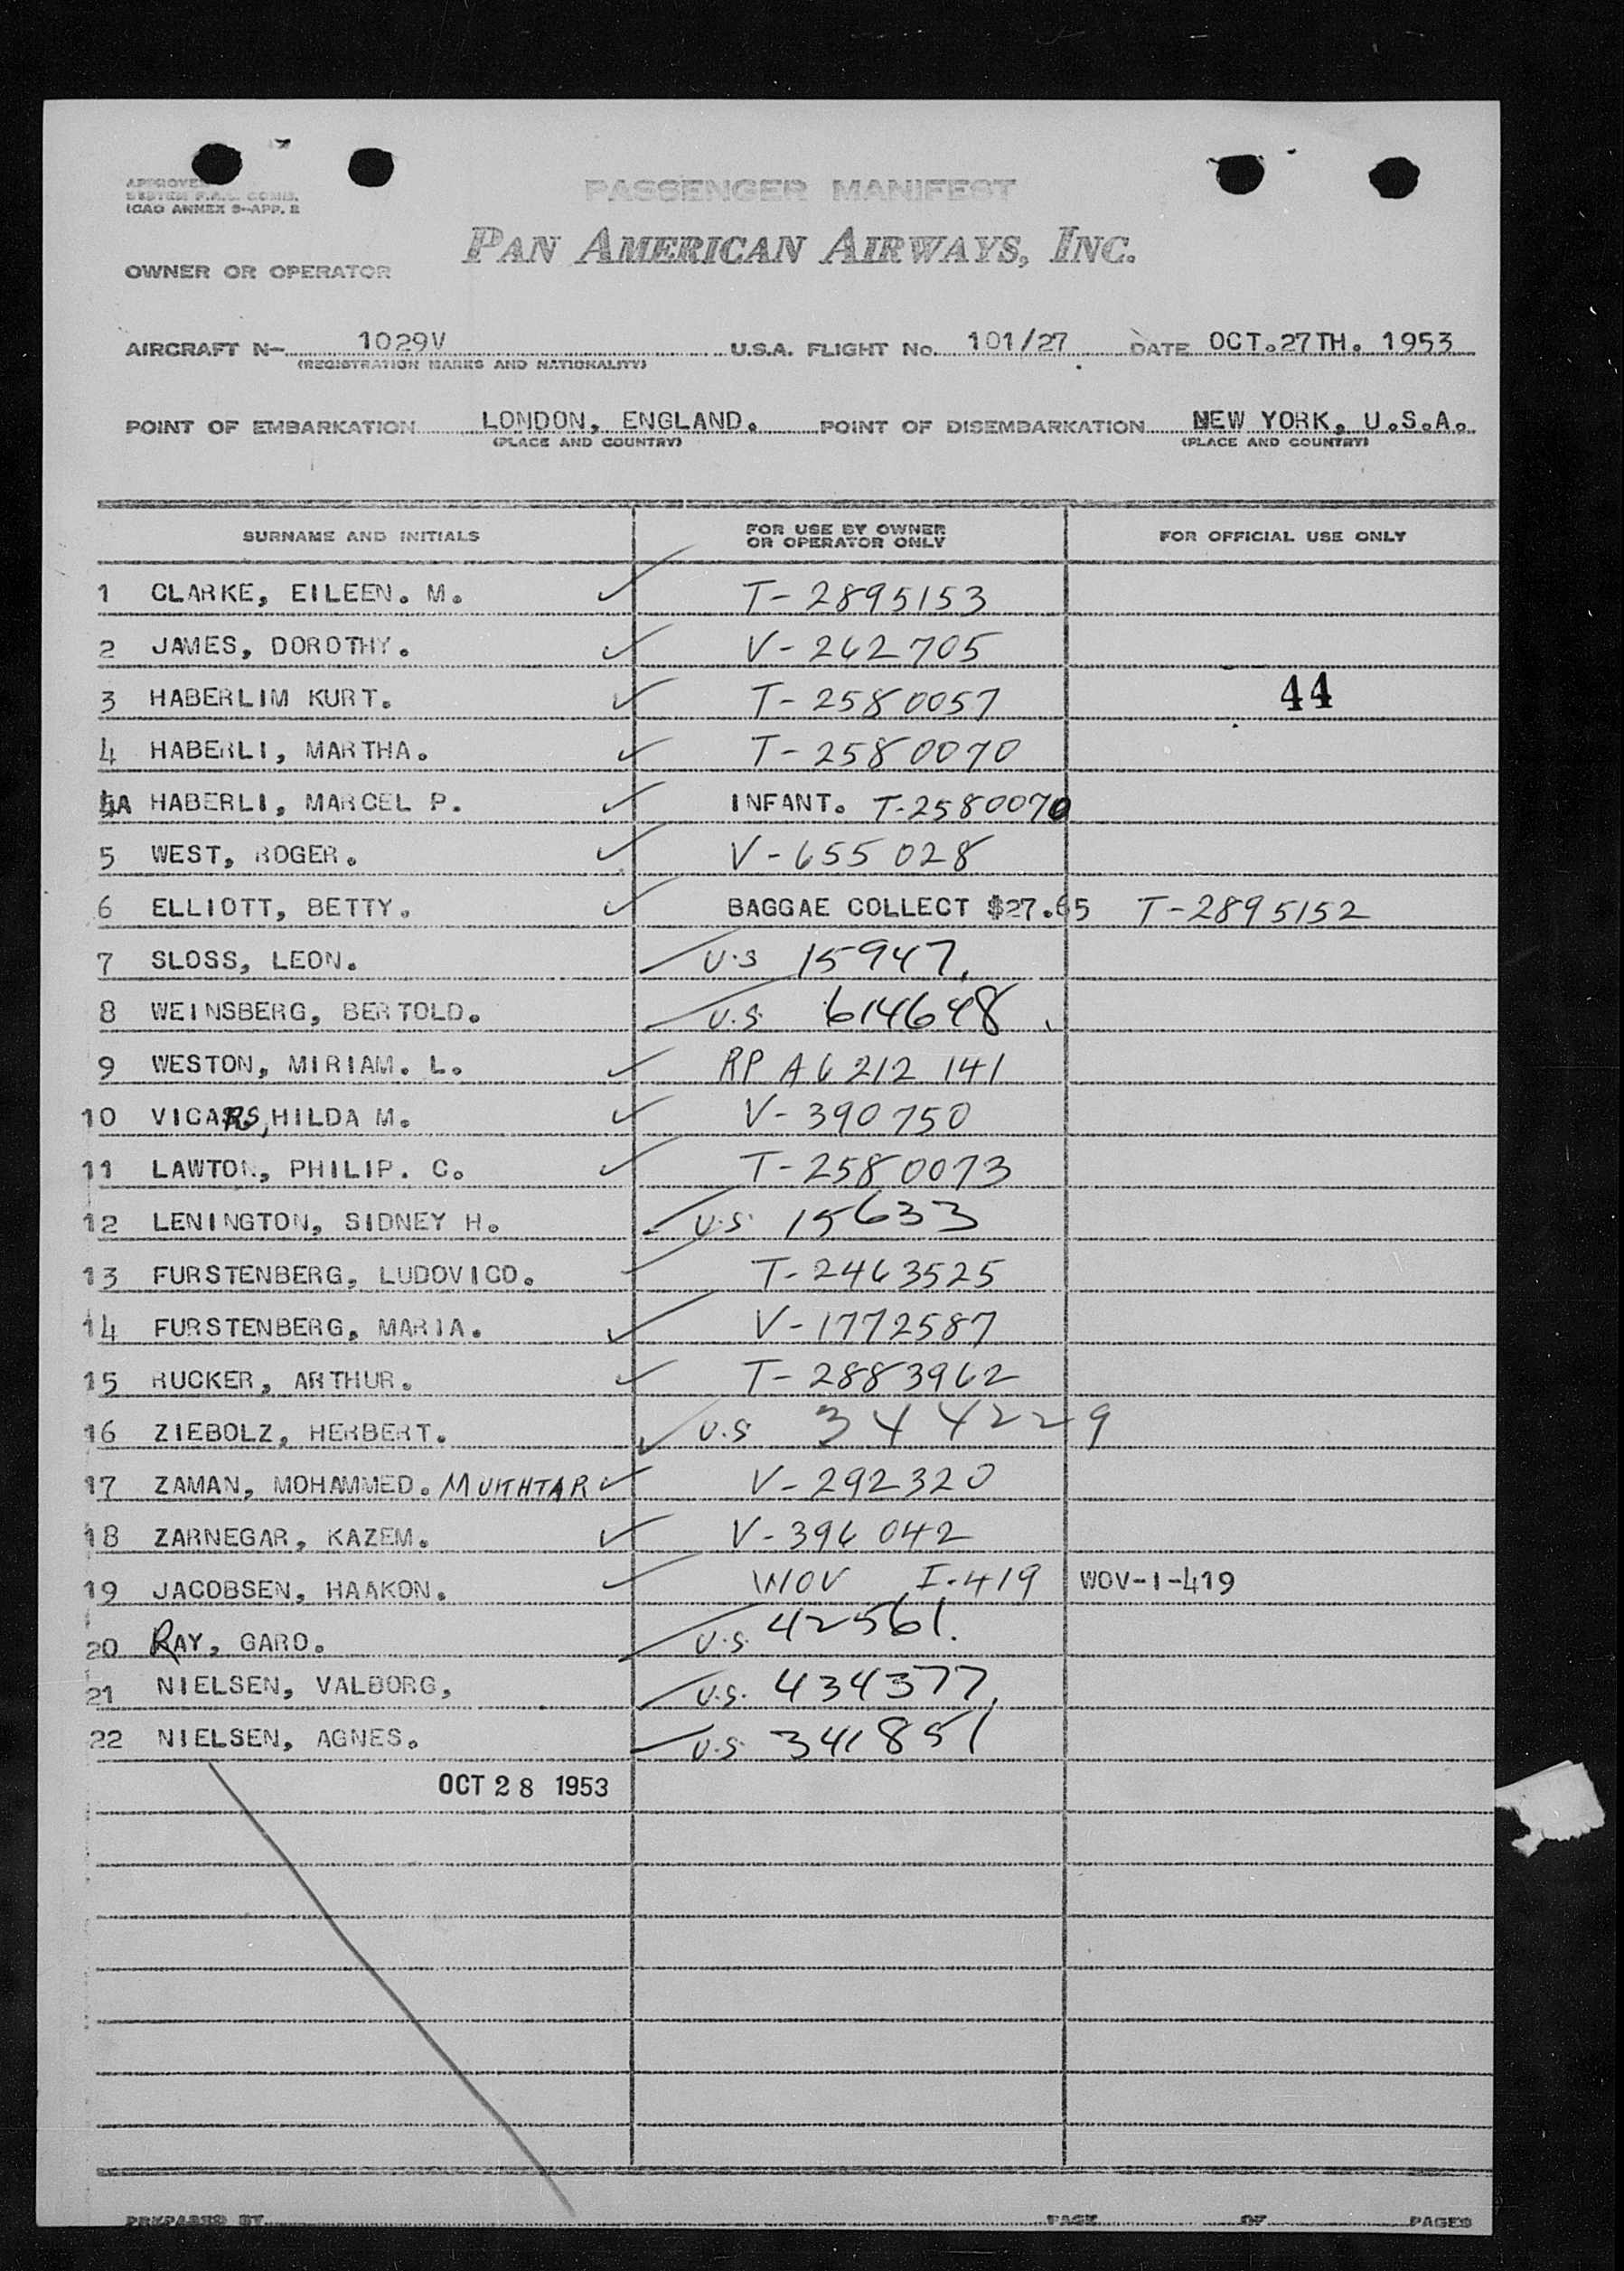 APPROVED
SYSTEM F.A.L. COMB.
ICAO ANNEX 9-APP. 2
PASSENGER MANIFEST
PAN AMERICAN AIRWAYS, INC.
OWNER OR OPERATOR
AIRCRAFT N- 1029V U.S.A. FLIGHT No. 101/27 DATE OCT.27TH. 1953
(REGISTRATION MARKS AND NATIONALITY)
POINT OF EMBARKATION LONDON, ENGLAND. POINT OF DISEMBARKATION NEW YORK, U.S.A.
(PLACE AND COUNTRY) (PLACE AND COUNTRY)
SURNAME AND INITIALS FOR USE BY OWNER OR OPERATOR ONLY FOR OFFICIAL USE ONLY
1 CLARKE, EILEEN. M. T-2895153
2 JAMES, DOROTHY. V-262705
3 HABERLIM KURT. T-2580057 44
4 HABERLI, MARTHA. T-2580070
4A HABERLI, MARCEL P. INFANT. T-2580070
5 WEST, ROGER. V-655028
6 ELLIOTT, BETTY. BAGGAE COLLECT $27.65 T-2895152
7 SLOSS, LEON. U.S 15947.
8 WEINSBERG, BERTOLD. U.S. 614648
9 WESTON, MIRIAM. L. RP A6 212 141
10 VICARS, HILDA M. V-390750
11 LAWTON, PHILIP. C. T-2580073
12 LENINGTON, SIDNEY H. U.S. 15633
13 FURSTENBERG, LUDOVICO. T-2463525
14 FURSTENBERG, MARIA. V-1772587
15 RUCKER, ARTHUR. T-2883962
16 ZIEBOLZ, HERBERT. U.S 344229
17 ZAMAN, MOHAMMED. MUKHTAR V-292320
18 ZARNEGAR, KAZEM. V-396042
19 JACOBSEN, HAAKON. WOV I-419 WOV-1-419
20 RAY, GARD. U.S. 42561.
21 NIELSEN, VALBORG, U.S. 434377.
22 NIELSEN, AGNES. U.S 341851
OCT 28 1953
PREPARED BY PAGE OF PAGES